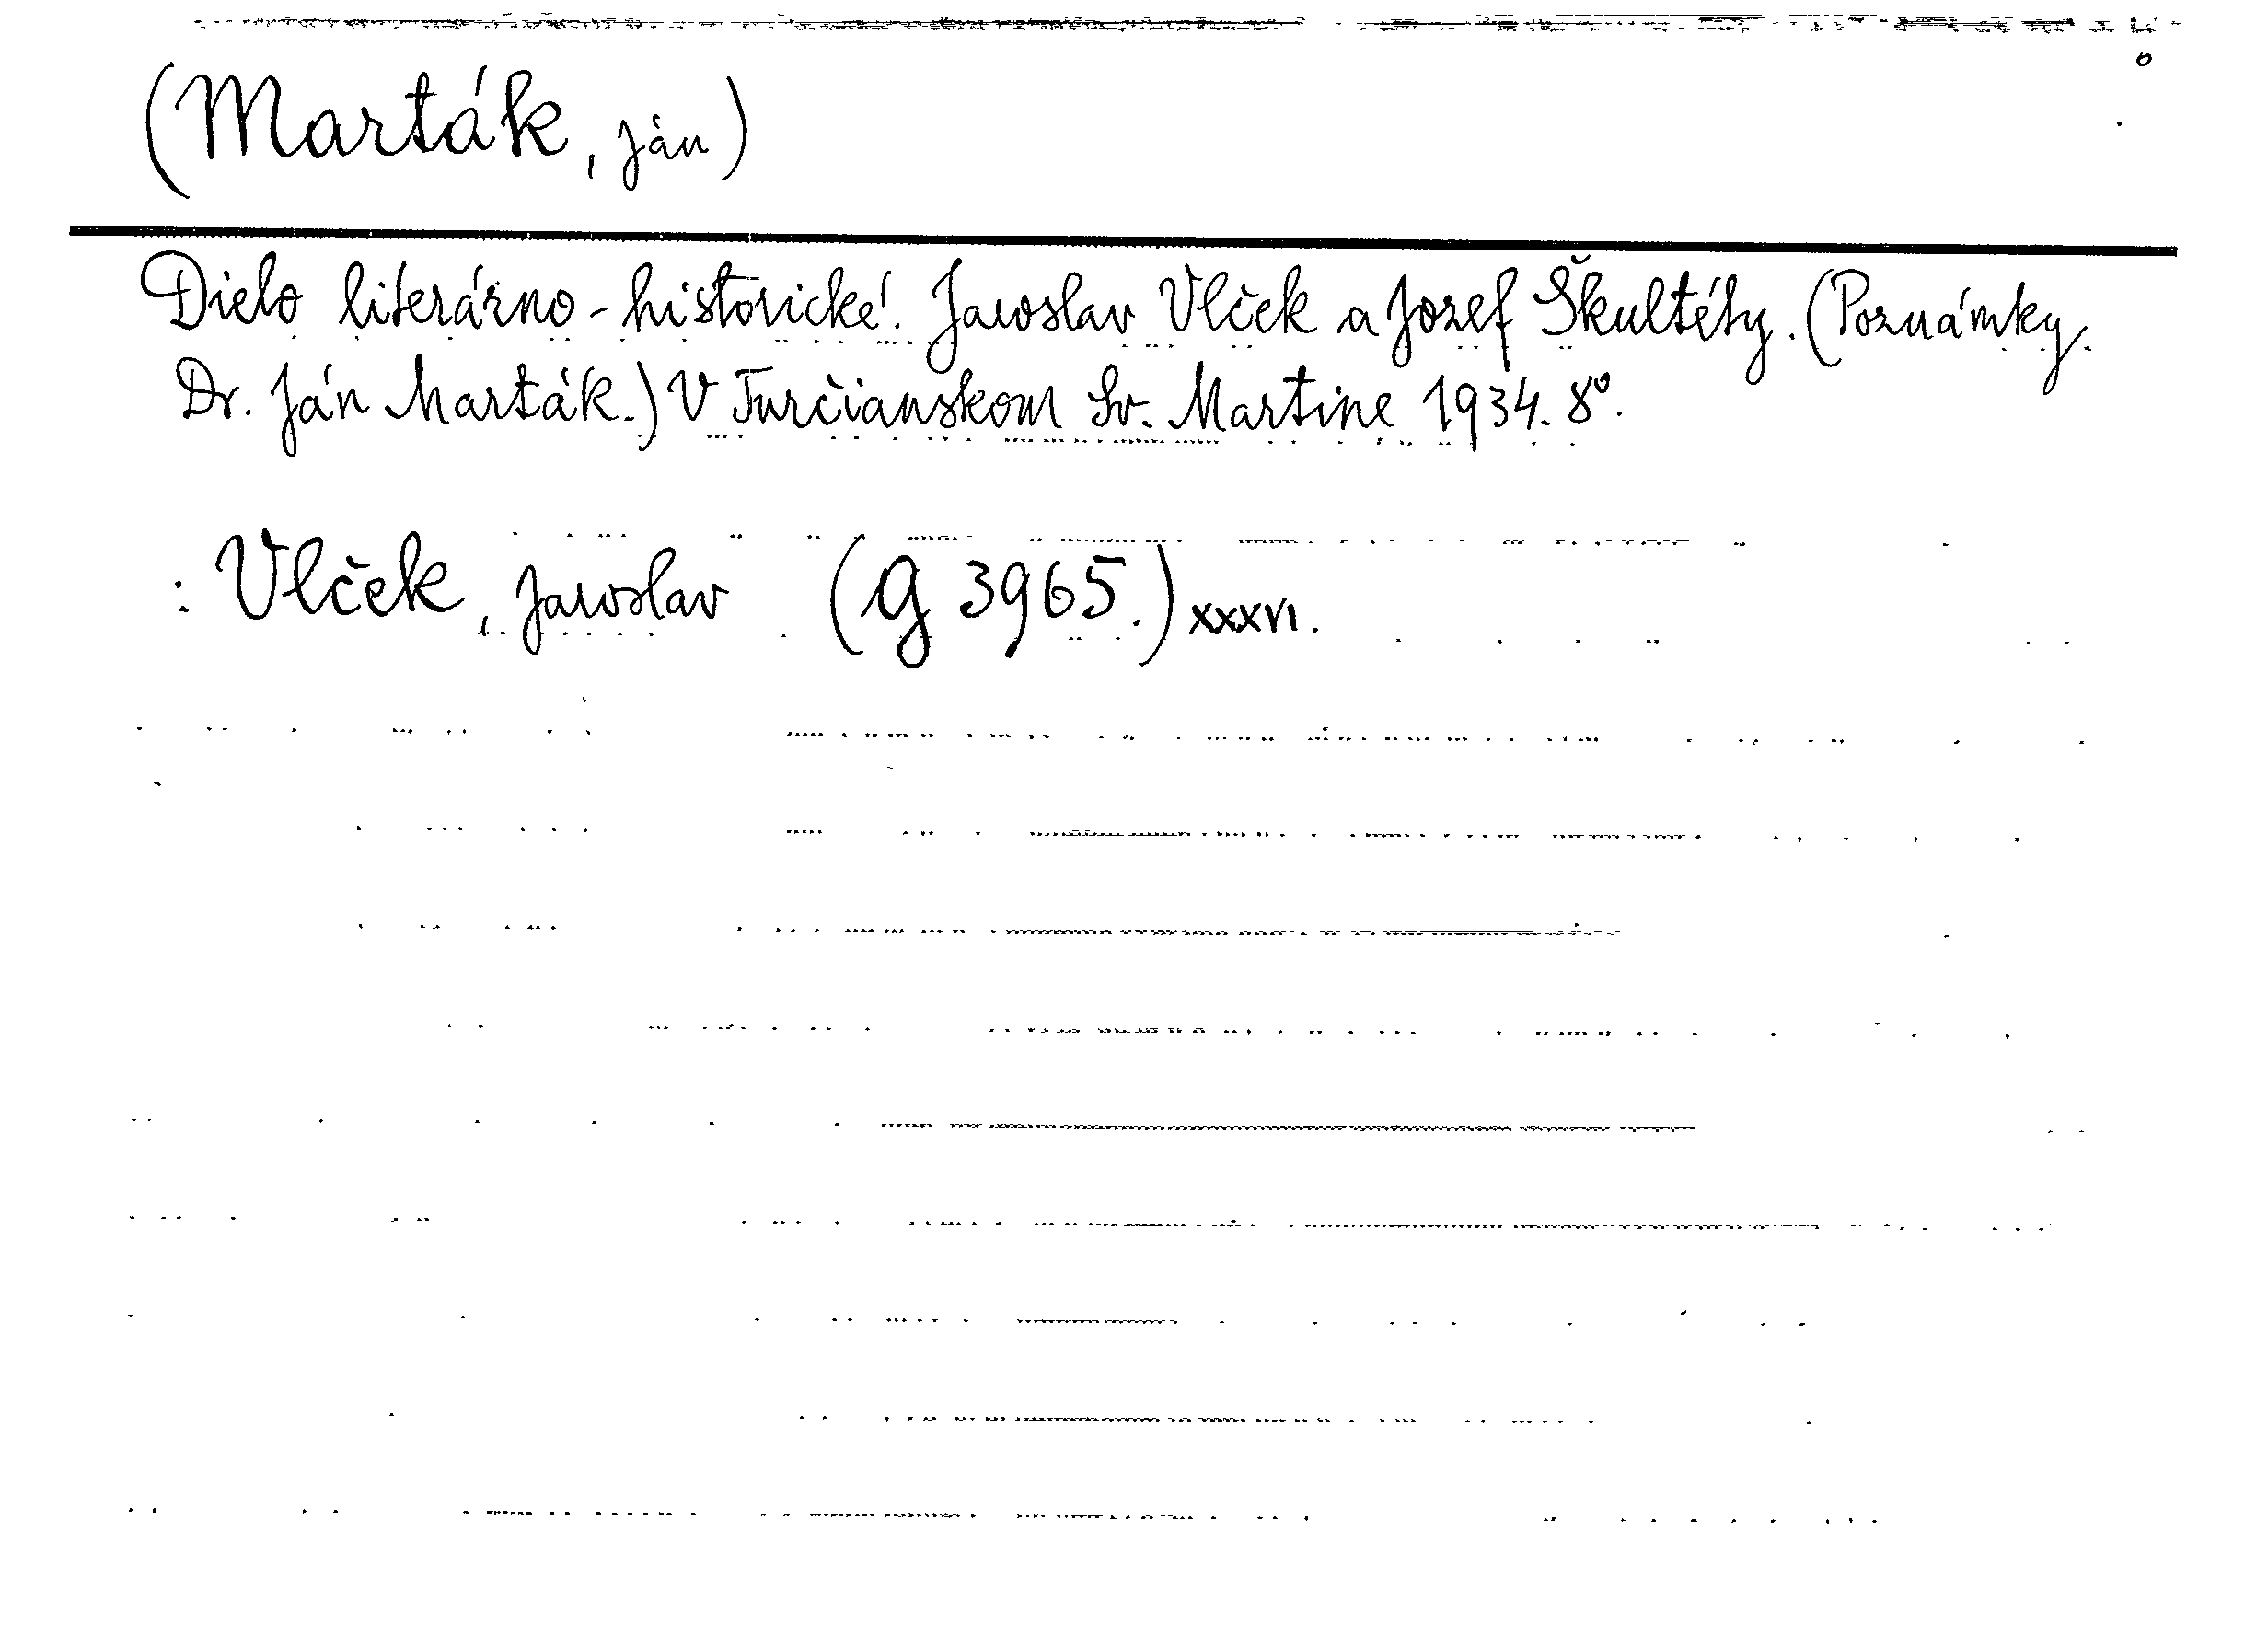 (Marták, Ján)
Dielo literárno-historické. Jaroslav Vlček a Jozef Škultéty. (Poznámky.
Dr. Ján Marták.) V Turčianskom Sv. Martine 1934. 8°.
: Vlček, Jaroslav (G 3965.) XXXVI.